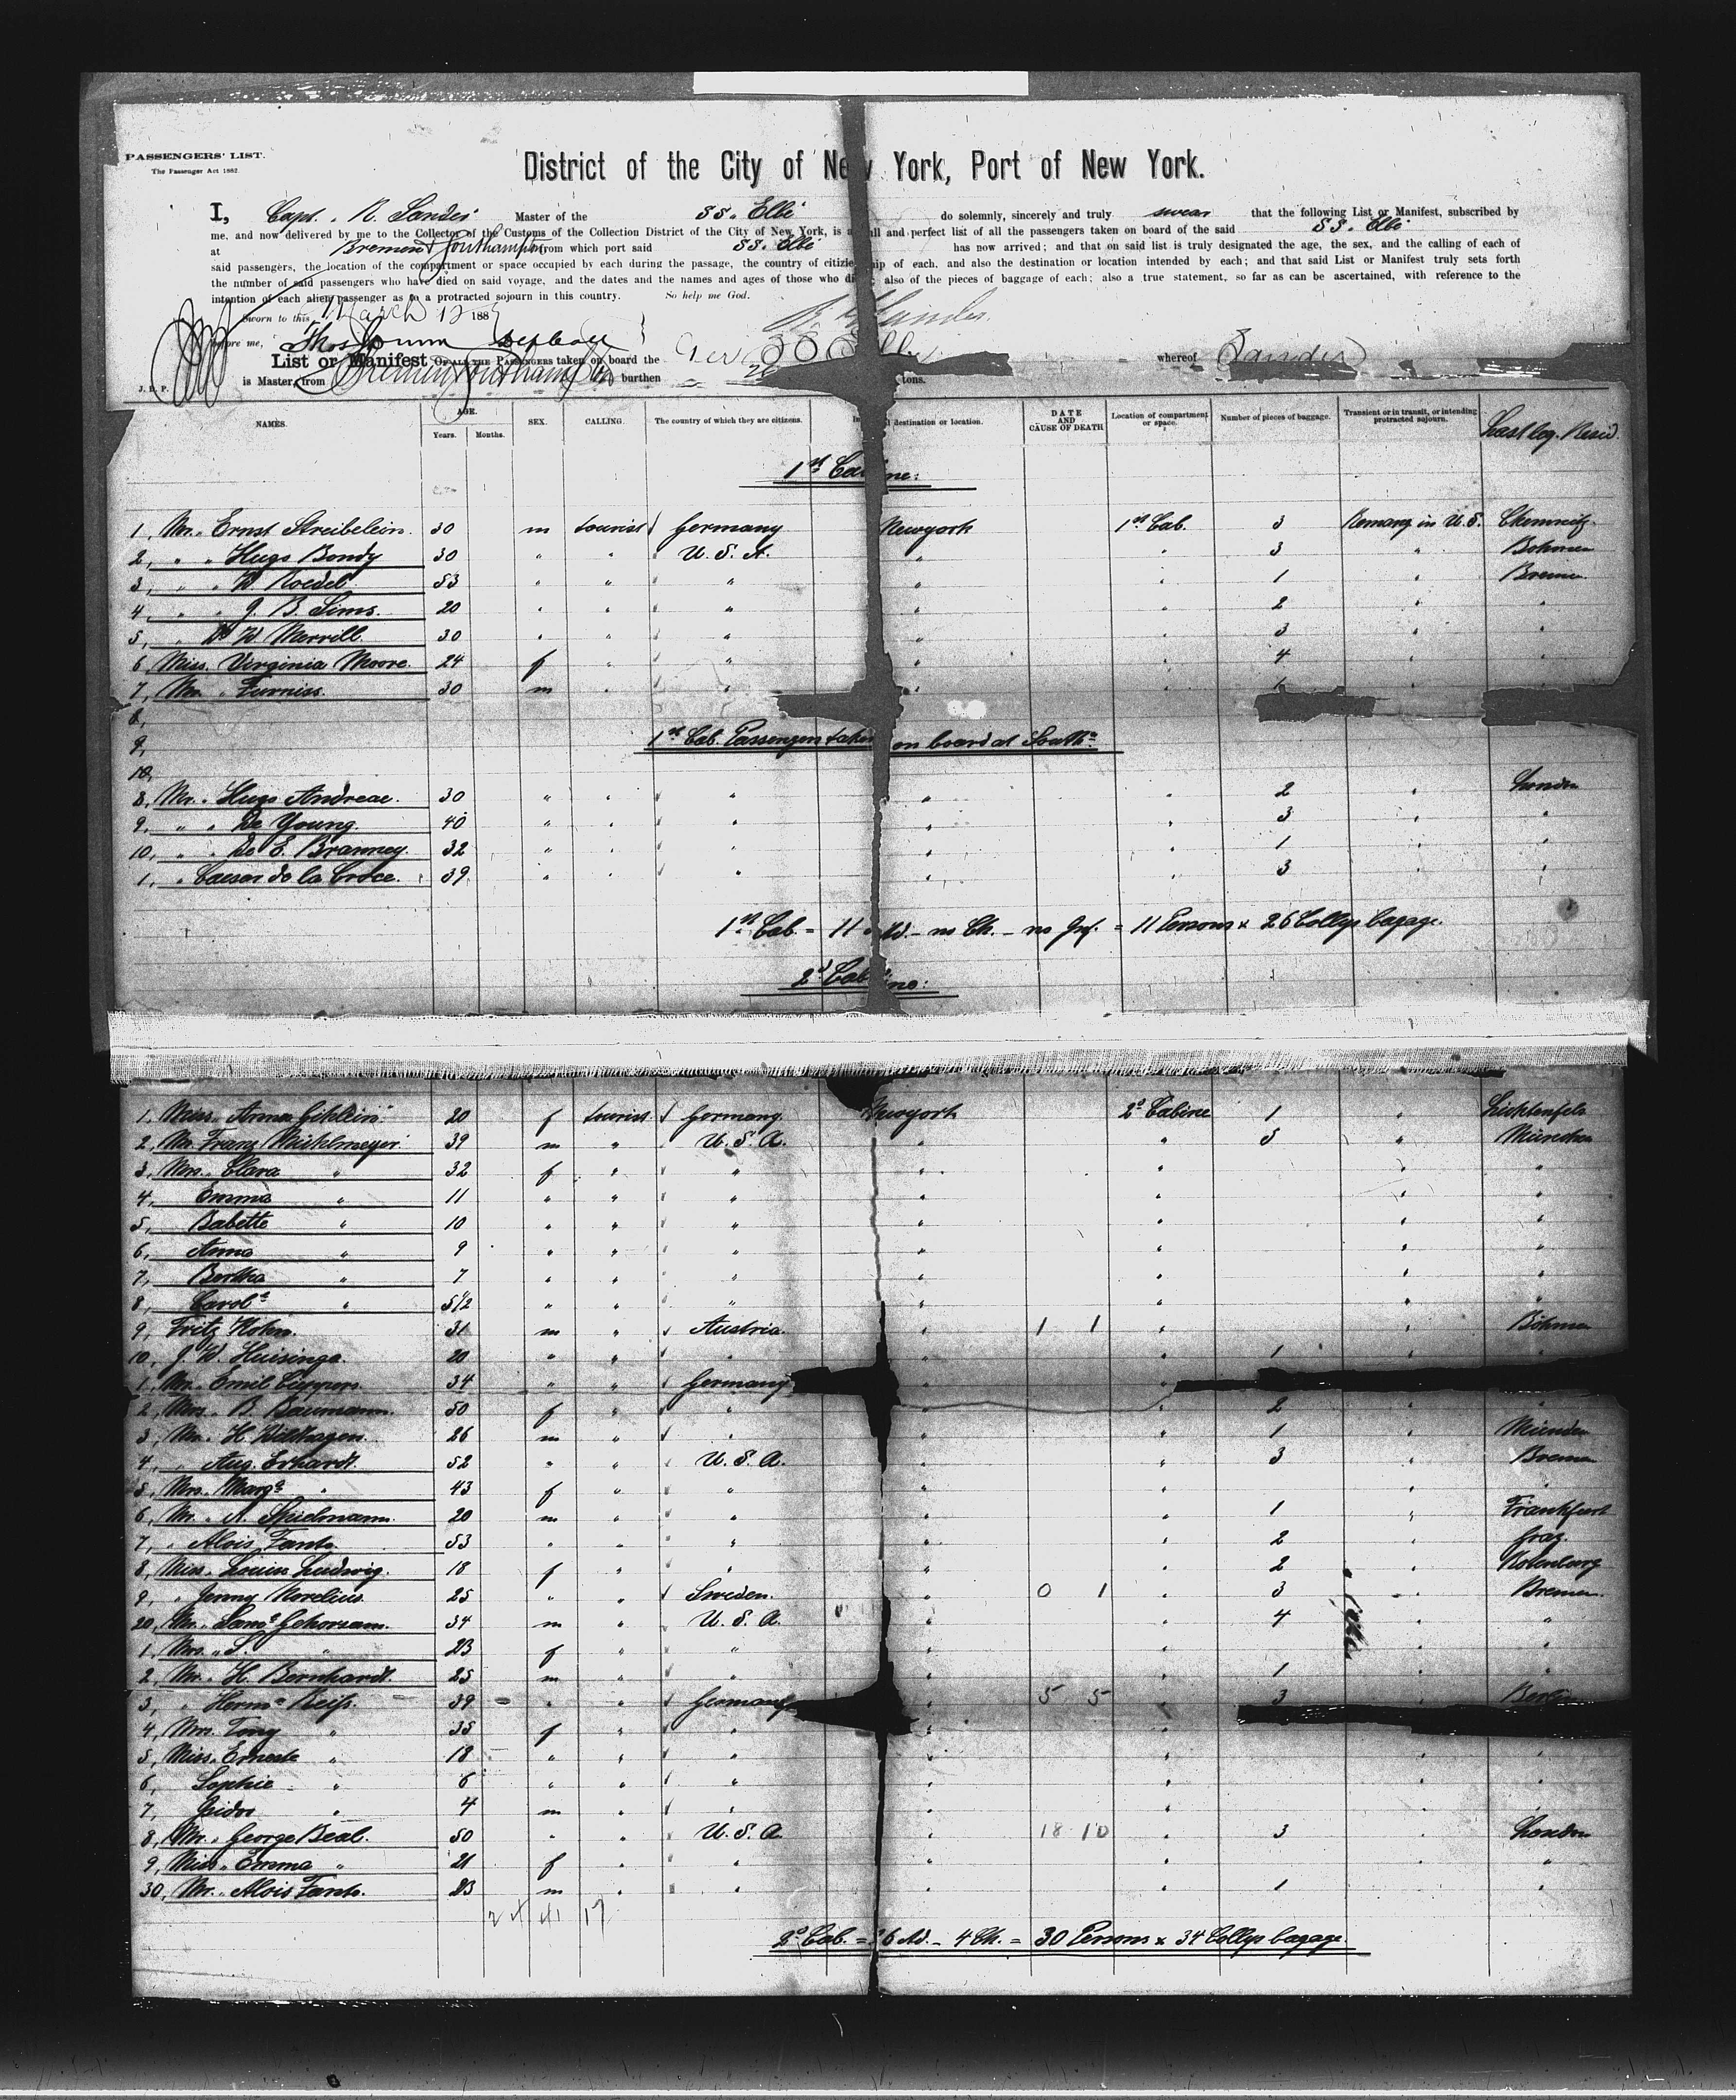 PASSENGERS' LIST.
The Passenger Act 1882.
District of the City of New York, Port of New York.
I, Capt. R. Sander Master of the SS. Elbe do solemnly, sincerely and truly swear that the following List or Manifest, subscribed by
me, and now delivered by me to the Collector of the Customs of the Collection District of the City of New York, is a full and perfect list of all the passengers taken on board of the said SS. Elbe
at Bremen & Southampton from which port said SS. Elbe has now arrived; and that on said list is truly designated the age, the sex, and the calling of each of
said passengers, the location of the compartment or space occupied by each during the passage, the country of citizenship of each, and also the destination or location intended by each; and that said List or Manifest truly sets forth
the number of said passengers who have died on said voyage, and the dates and the names and ages of those who died; also of the pieces of baggage of each; also a true statement, so far as can be ascertained, with reference to the
intention of each alien passenger as to a protracted sojourn in this country. So help me God.
Sworn to this March 12 188
before me,
List or Manifest OF ALL THE PASSENGERS taken on board the SS Elbe whereof Sander
J. E. P. is Master, from Bremen Southampton burthen tons.
NAMES. AGE. Years. Months. SEX. CALLING. The country of which they are citizens. destination or location. DATE AND CAUSE OF DEATH Location of compartment or space. Number of pieces of baggage. Transient or in transit, or intending protracted sojourn. Last leg. Resid.
1st Cabine:
1, Mr. Ernst Streibelein. 30 m tourist Germany Newyork 1st Cab. 3 Remang in U.S. Chemnitz.
2, " " Hugo Bondy 30 " " U. S. A. " " 3 " Bohmen
3, " " W. Roedel 53 " " " " " 1 " Bremen
4, " " J. B. Sims. 20 " " " " " 2 " "
5, " W. Merrill. 30 " " " " " 3 " "
6, Miss. Virginia Moore. 24 f " " " " 4 " "
7, Mr. Furniss. 30 m " " " " 1 "
8,
9, 1st Cab. Passengers taken on board at Southn
10,
8, Mr. Hugo Andreae. 30 " " " " " 2 " London
9, " " De Young. 40 " " " " " 3 " "
10, " " De E. Branney. 32 " " " " " 1 " "
1, " Caesar de la Croce. 39 " " " " " 3 " "
1st Cab. = 11 Ad. - no Ch. - no Inf. = 11 Persons x 26 Collys bagage.
2d Cabine:
1, Miss. Anna Gihlein. 20 f tourist Germany. Newyork 2d Cabine 1 " Lichtenfels
2, Mr. Franz Michlmeyer. 39 m " U. S. A. " " 5 " München
3, Mrs. Clara " 32 f " " " " " "
4, Emma " 11 " " " " " " "
5, Babette " 10 " " " " " " "
6, Anna " 9 " " " " " " "
7, Bertha " 7 " " " " " " "
8, Carola " 5 1/2 " " " " " " "
9, Fritz Kohn. 31 m " Austria. " 1 1 " " Böhmen
10, J. W. Huisinga. 20 " " " " " 1 " "
1, Mr. Emil Cuypers. 34 " " Germany " "
2, Mrs. B. Baumann. 50 f " " " " 2 " "
3, Mr. H. Wilthagen. 26 m " " " " 1 " Münden
4, " Aug. Erhardt. 52 " " U. S. A. " " 3 " Bremen
5, Mrs. Marga " 43 f " " " " " "
6, Mr. A. Spielmann. 20 m " " " " 1 " Frankfurt
7, " Alois Fanto. 53 " " " " " 2 " Graz.
8, Miss. Louise Ludwig. 18 f " " " " 2 " Rotenburg
9, " Jenny Norelius. 25 " " Sweden. " 0 1 " 3 " Bremen.
20, Mr. Saml Gehorsam. 34 m " U. S. A. " " 4 " "
1, Mrs. S. " 23 f " " " " " "
2, Mr. H. Bernhardt. 25 m " " " " 1 " "
3, " Hermn Reiss. 39 " " Germany " 5 5 " 3 Berlin
4, Mrs. Tony " 35 f " " " "
5, Miss. Erneste " 18 " " " " " " "
6, Sophie " 6 " " " " " " "
7, Isidor " 4 m " " " " " "
8, Mr. George Beal. 50 " " U. S. A. " 18 10 " 3 " London
9, Miss. Emma " 21 f " " " " " "
30, Mr. Alois Fanto. 23 m " " " " 1 " "
2d Cab. = 26 Ad. - 4 Ch. = 30 Persons x 34 Collys bagage.